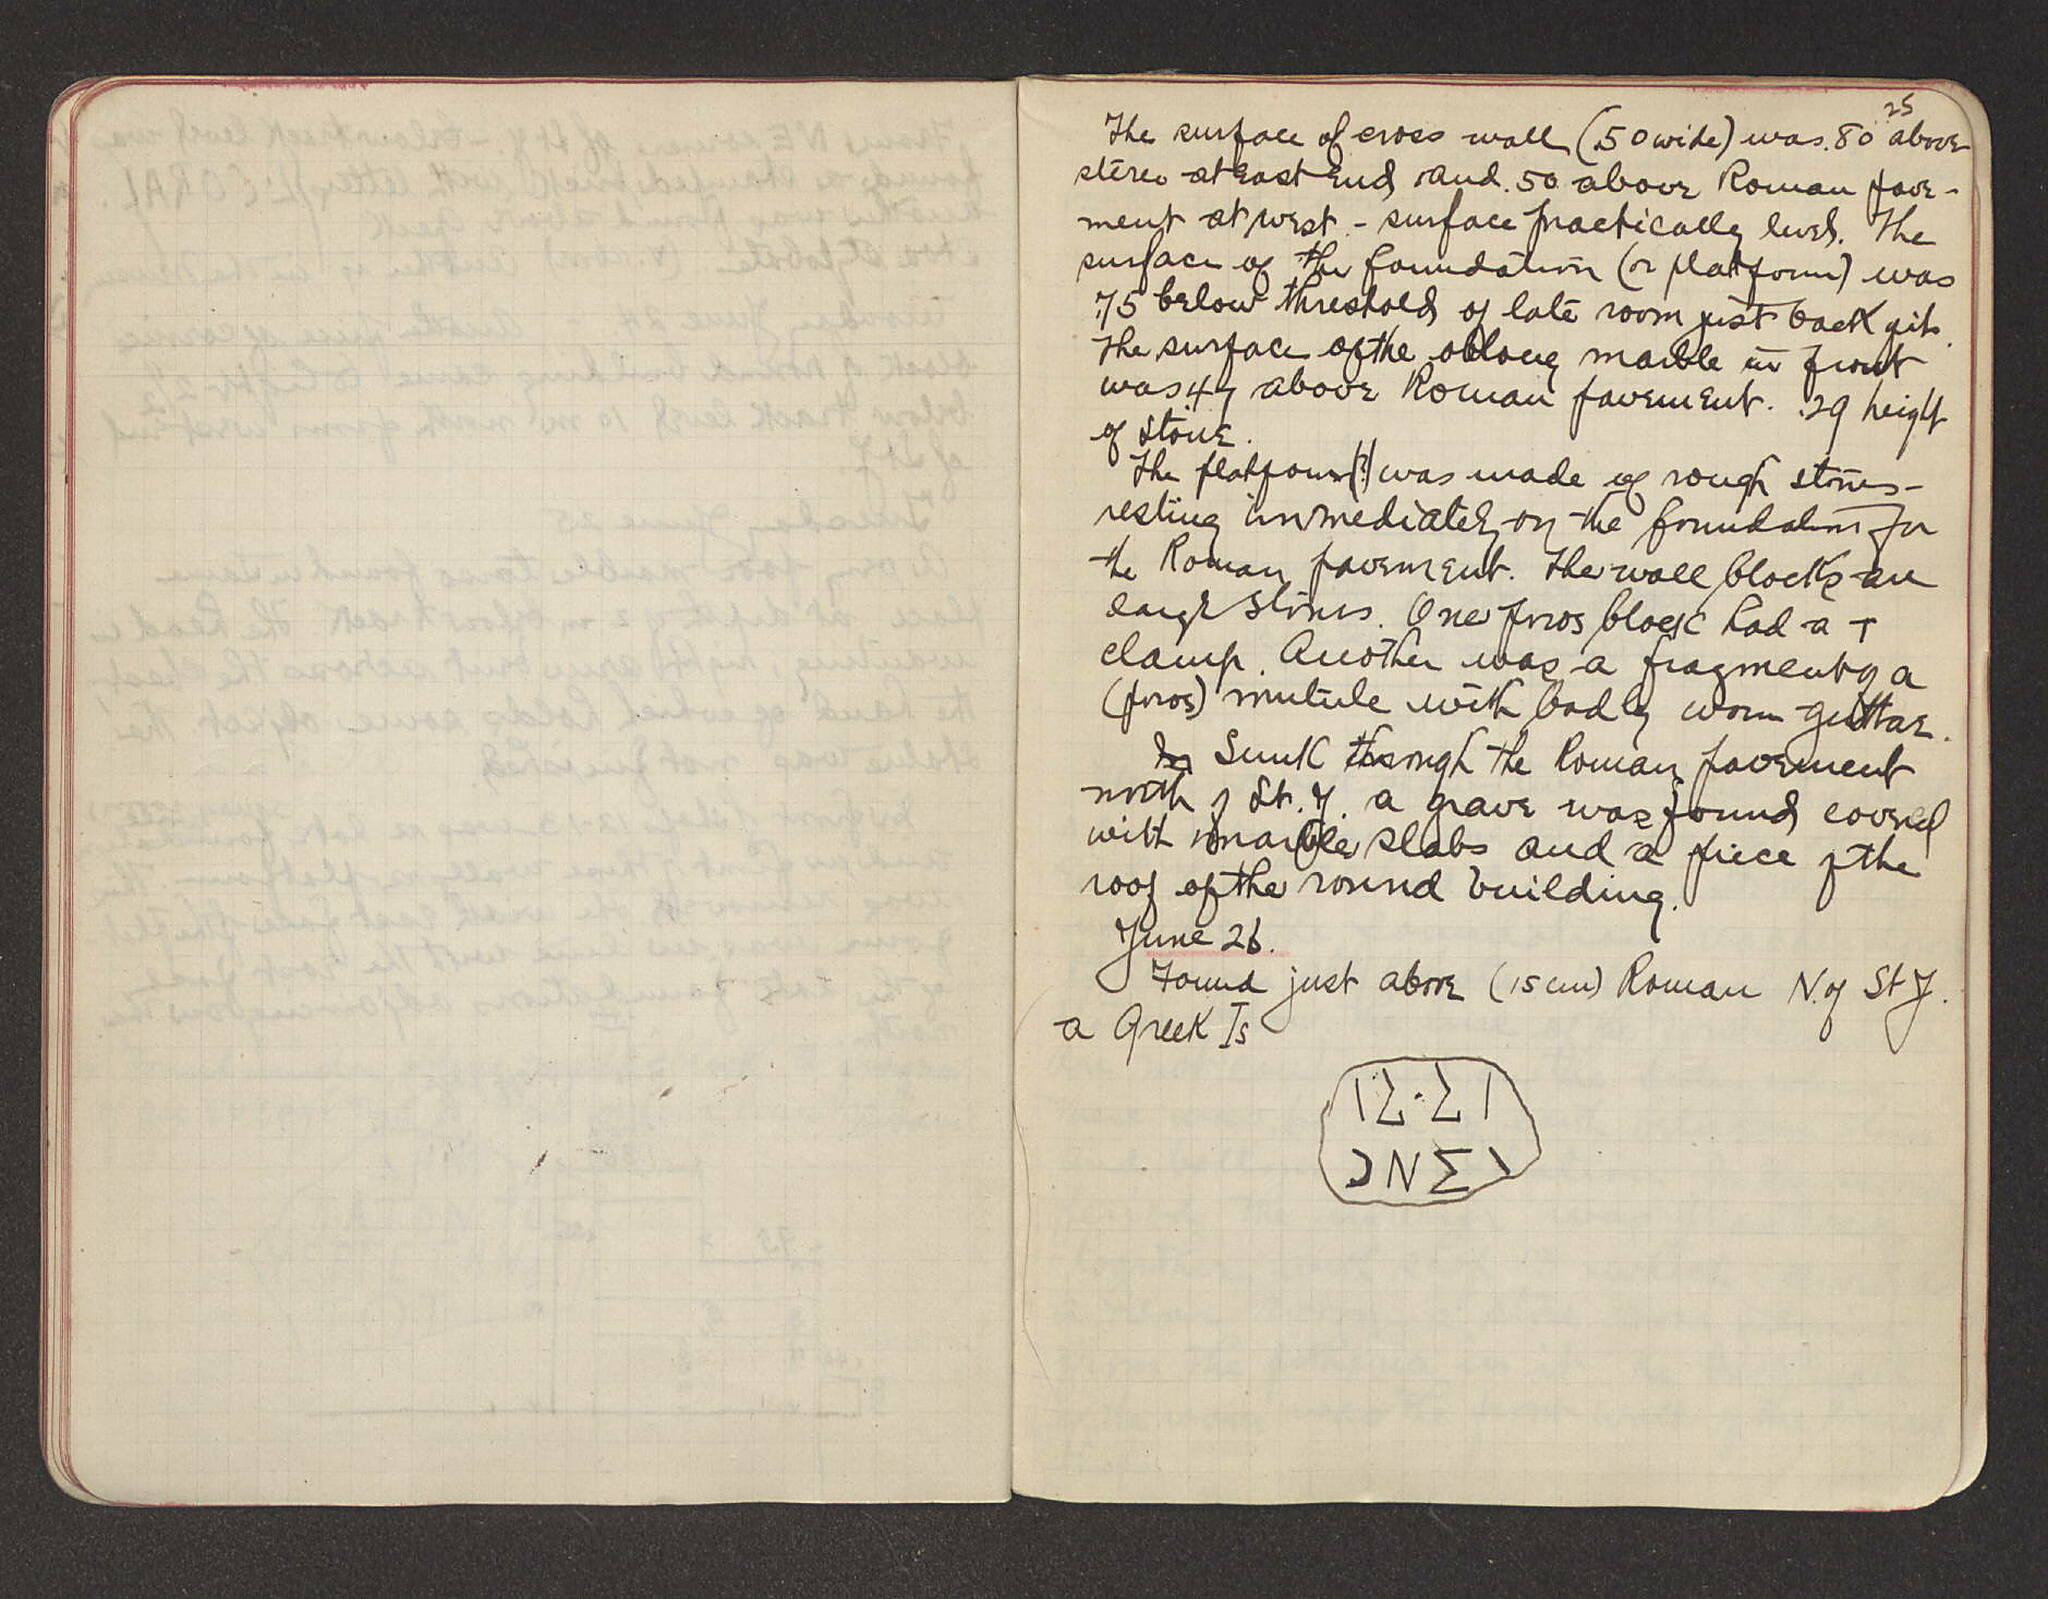 25
The surface of cross wall (.50 wide) was .80 above
stereo at East End and .50 above Roman pave-
ment at west - surface practically level. The
surface of the foundation (or platform) was
.75 below threshold of late room just back of it.
The surface of the oblong marble in front
was 47 above Roman pavement. .29 height
of stone.
The platform (?) was made of rough stones -
resting immediately on the foundations for
the Roman pavement. The wall blocks are
large stones. One poros block had a T
clamp. Another was a fragment of a
(poros) mutule with badly worn guttae.
Sunk through the Roman pavement
north of St. Y. a grave was found covered
with marble slabs and a piece of the
roof of the round building.
June 26.
Found just above (15 cm) Roman N. of St Y.
a Greek Is
ΙΣ·ΣΙ
ΟΝΣΙ